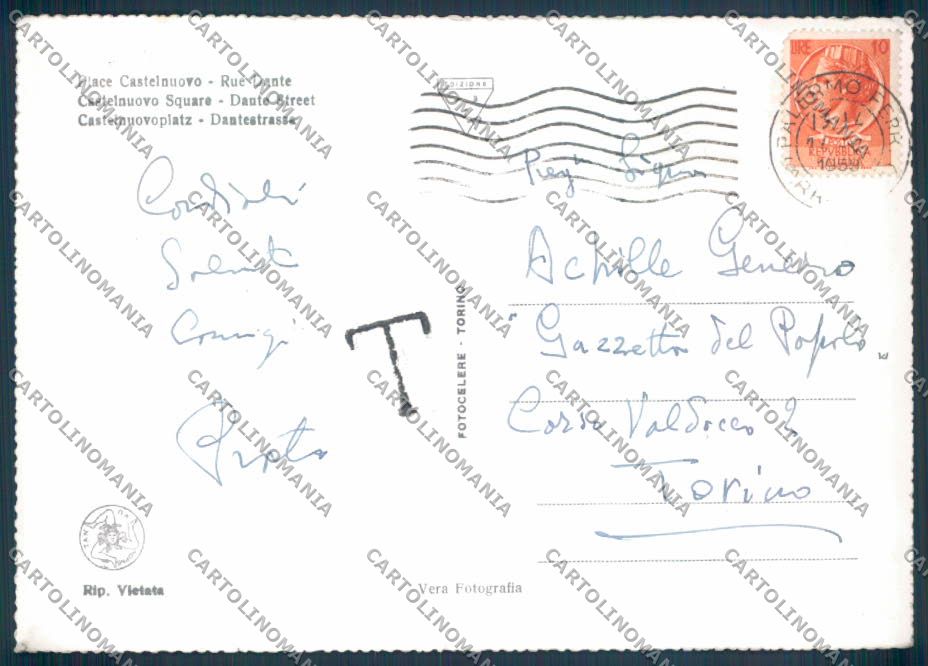 Place Castelnuovo - Rue Dante
Castelnuovo Square - Dante Street
Castelnuovoplatz - Dantestrasse
EDIZIONE
LIRE 10
PALERMO FERR.
1959
Cordiali
Saluti
T
FOTOCELERE - TORINO
Achille
"Gazzetta del Popolo"
Corso Valdocco 2
Torino
Rip. Vietata
Vera Fotografia
CARTOLINOMANIA